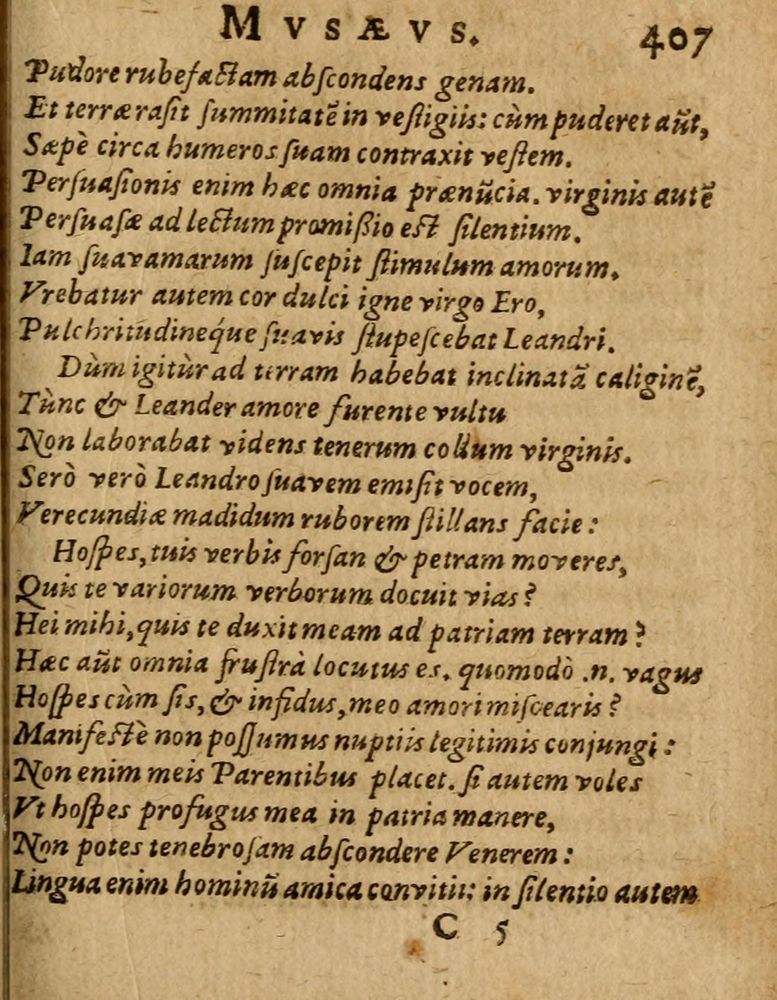 MVSÆVS. 407
Pudore rubefactam abſcondens genam.
Et terræ raſit ſummitatē in veſtigiis: cùm puderet aūt,
Sæpè circa humeros ſuam contraxit veſtem.
Perſuaſionis enim hæc omnia prænūcia. virginis autē
Perſuaſæ ad lectum promißio eſt ſilentium.
Iam ſuavamarum ſuſcepit ſtimulum amorum.
Vrebatur autem cor dulci igne virgo Ero,
Pulchritudineq́ue ſuavis ſtupeſcebat Leandri.
Dùm igitùr ad terram habebat inclinatā caliginē,
Tùnc & Leander amore furente vultu
Non laborabat videns tenerum collum virginis.
Serò verò Leandro ſuavem emiſit vocem,
Verecundiæ madidum ruborem ſtillans facie:
Hoſpes, tuis verbis forſan & petram moveres,
Quis te variorum verborum docuit vias?
Hei mihi, quis te duxit meam ad patriam terram?
Hæc aūt omnia fruſtrà locutus es. quomodò .n. vagus
Hoſpes cùm ſis, & infidus, meo amori miſcearis?
Manifeſtè non poſſumus nuptiis legitimis conjungi:
Non enim meis Parentibus placet. ſi autem voles
Vt hoſpes profugus mea in patria manere,
Non potes tenebroſam abſcondere Venerem:
Lingua enim hominū amica convitii: in ſilentio autem
C 5